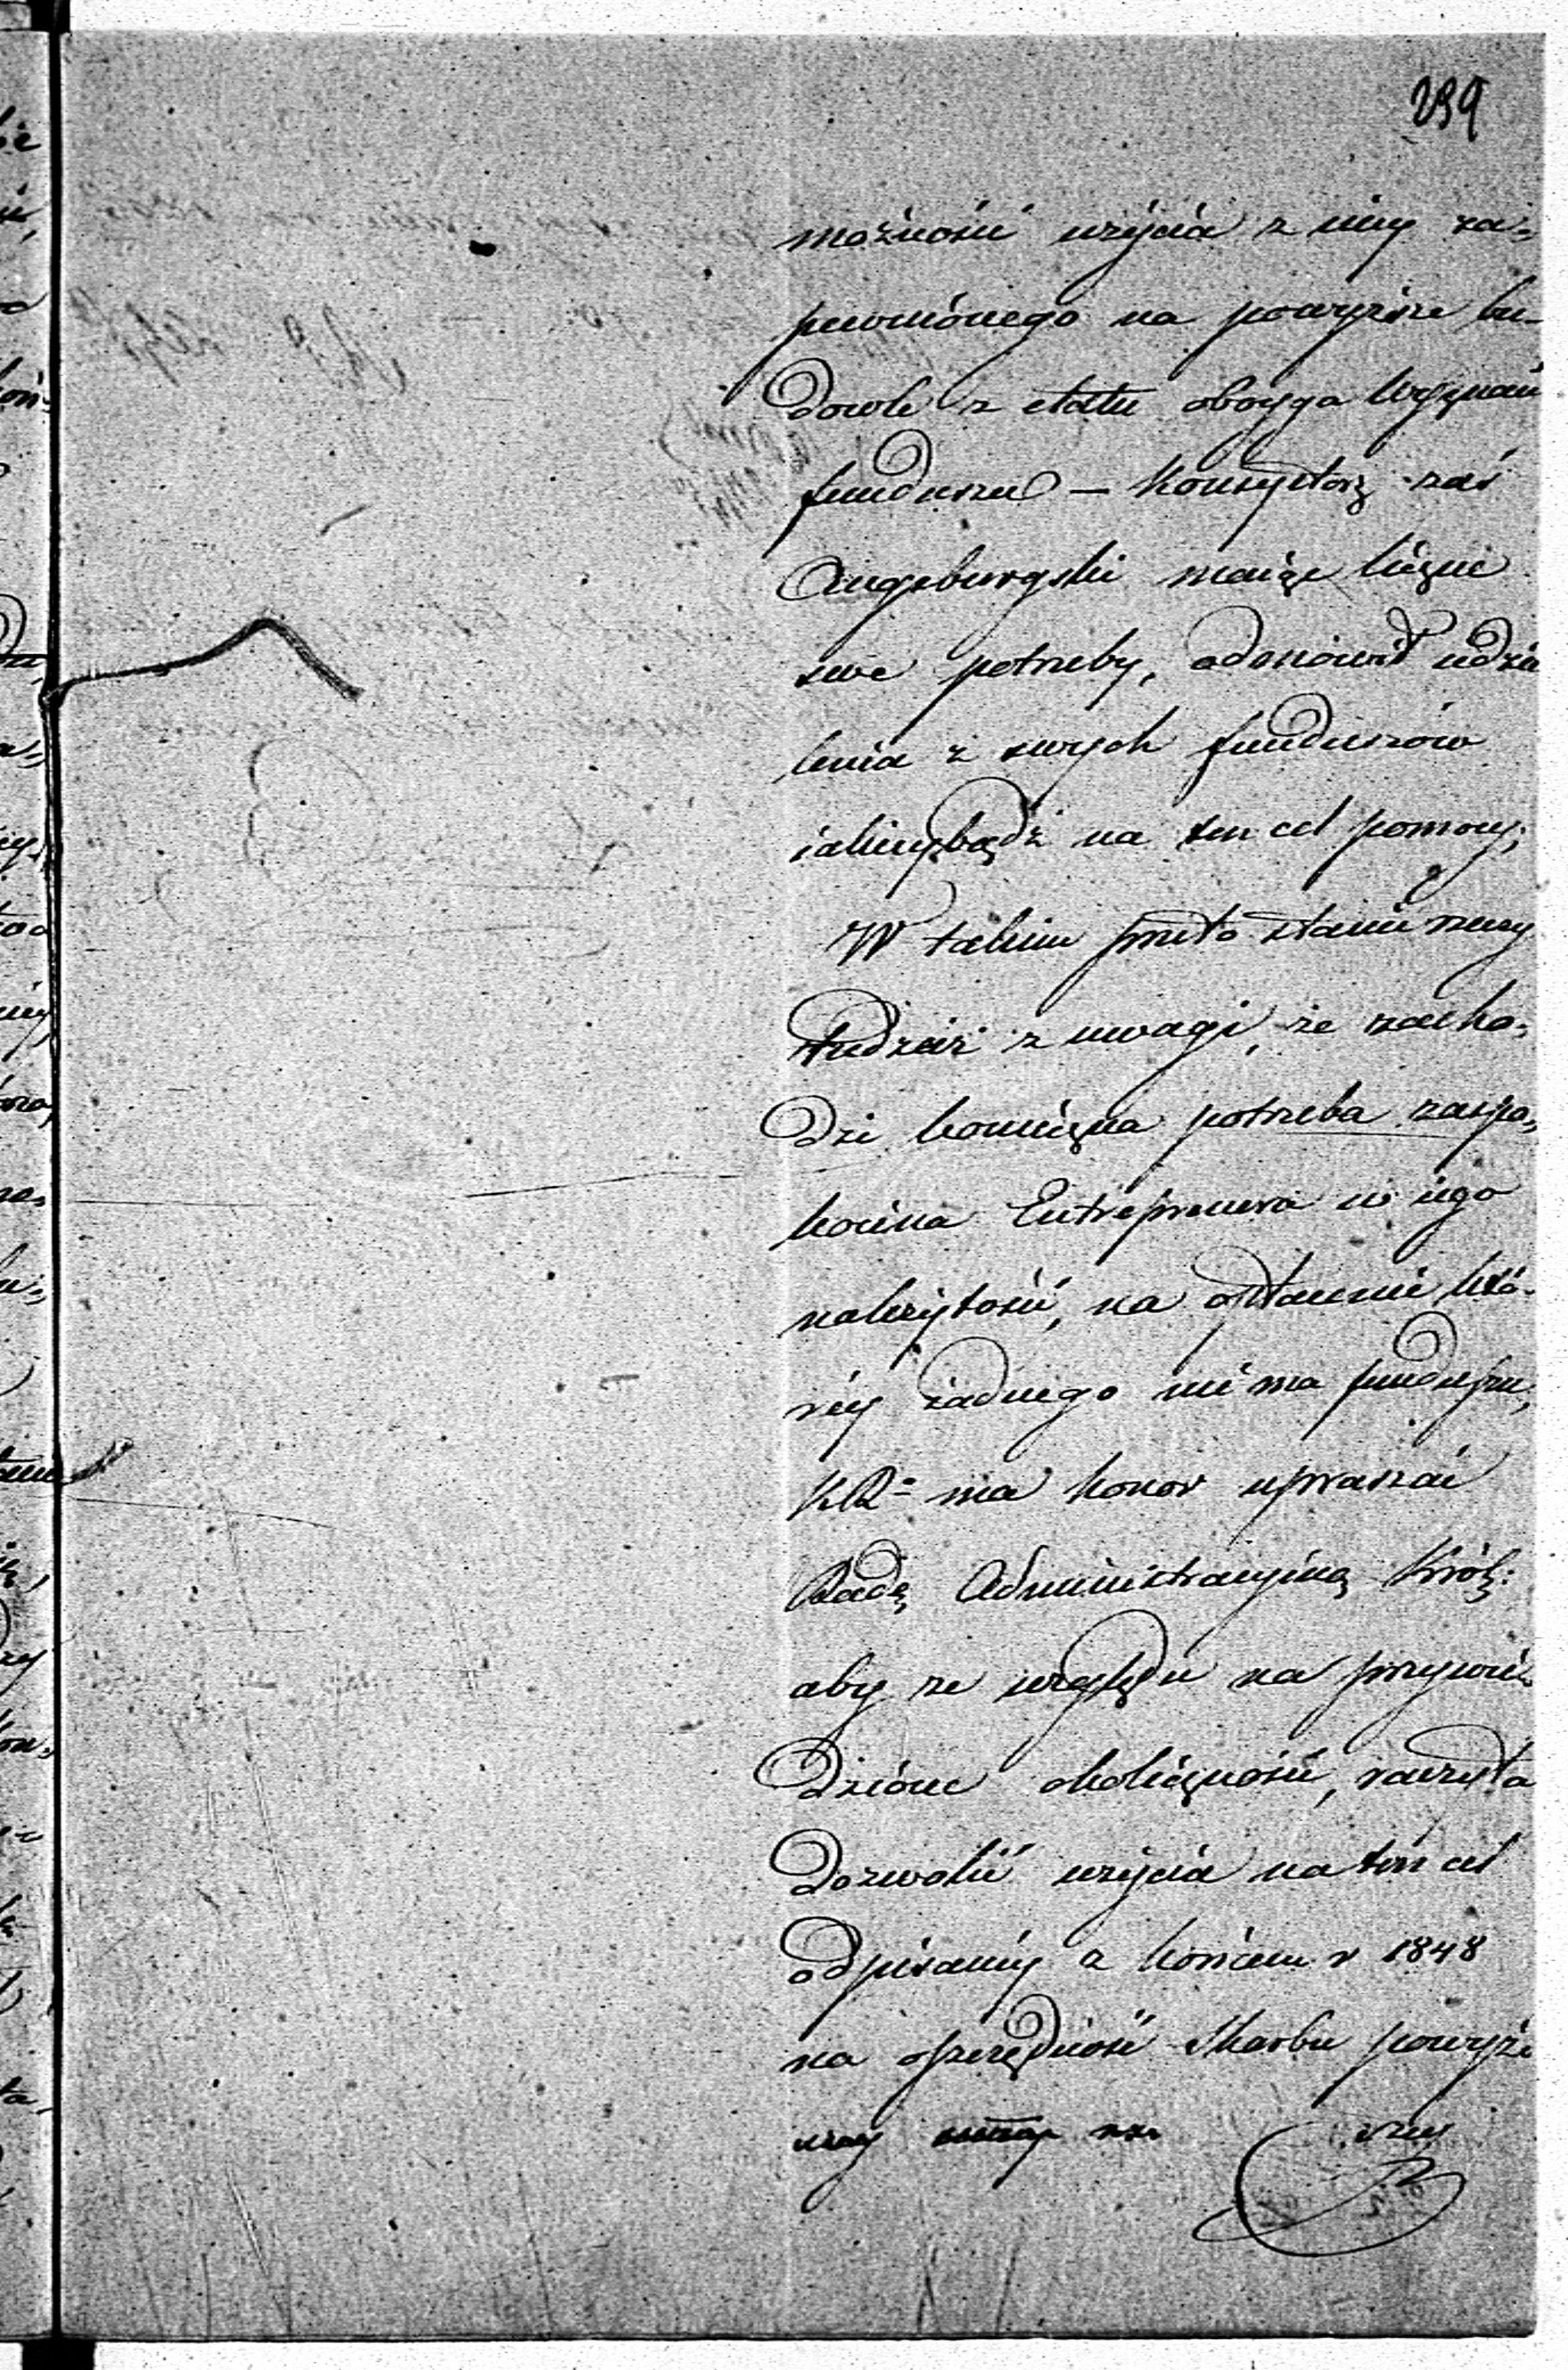 239
możności użycia z inny za-
pewnionego na powyższe bu-
dowle z etatu oboyga Wyznań
funduszu — Konsystorz zaś
Augsburgski maiąc liczne
swe potrzeby, odmówił udzie
lenia z swych funduszów
iakieybądź na ten cel pomocy;
W takim przeto stanie rzeczy
tudzież z uwagi, że zacho-
dzi konieczna potrzeba zaspo-
koienia Entreprenera w iego
należytości, na opłacenie któ-
réy żadnego nié ma funduszu,
KR= ma honor upraszać
Radę Administracyiną Król:
aby ze względu na przywie-
dzione okoliczności, raczyła
dozwolić użycia na ten cel
odpisanéy z końcem r 1848
na oszczędność Skarbu powyż
szey